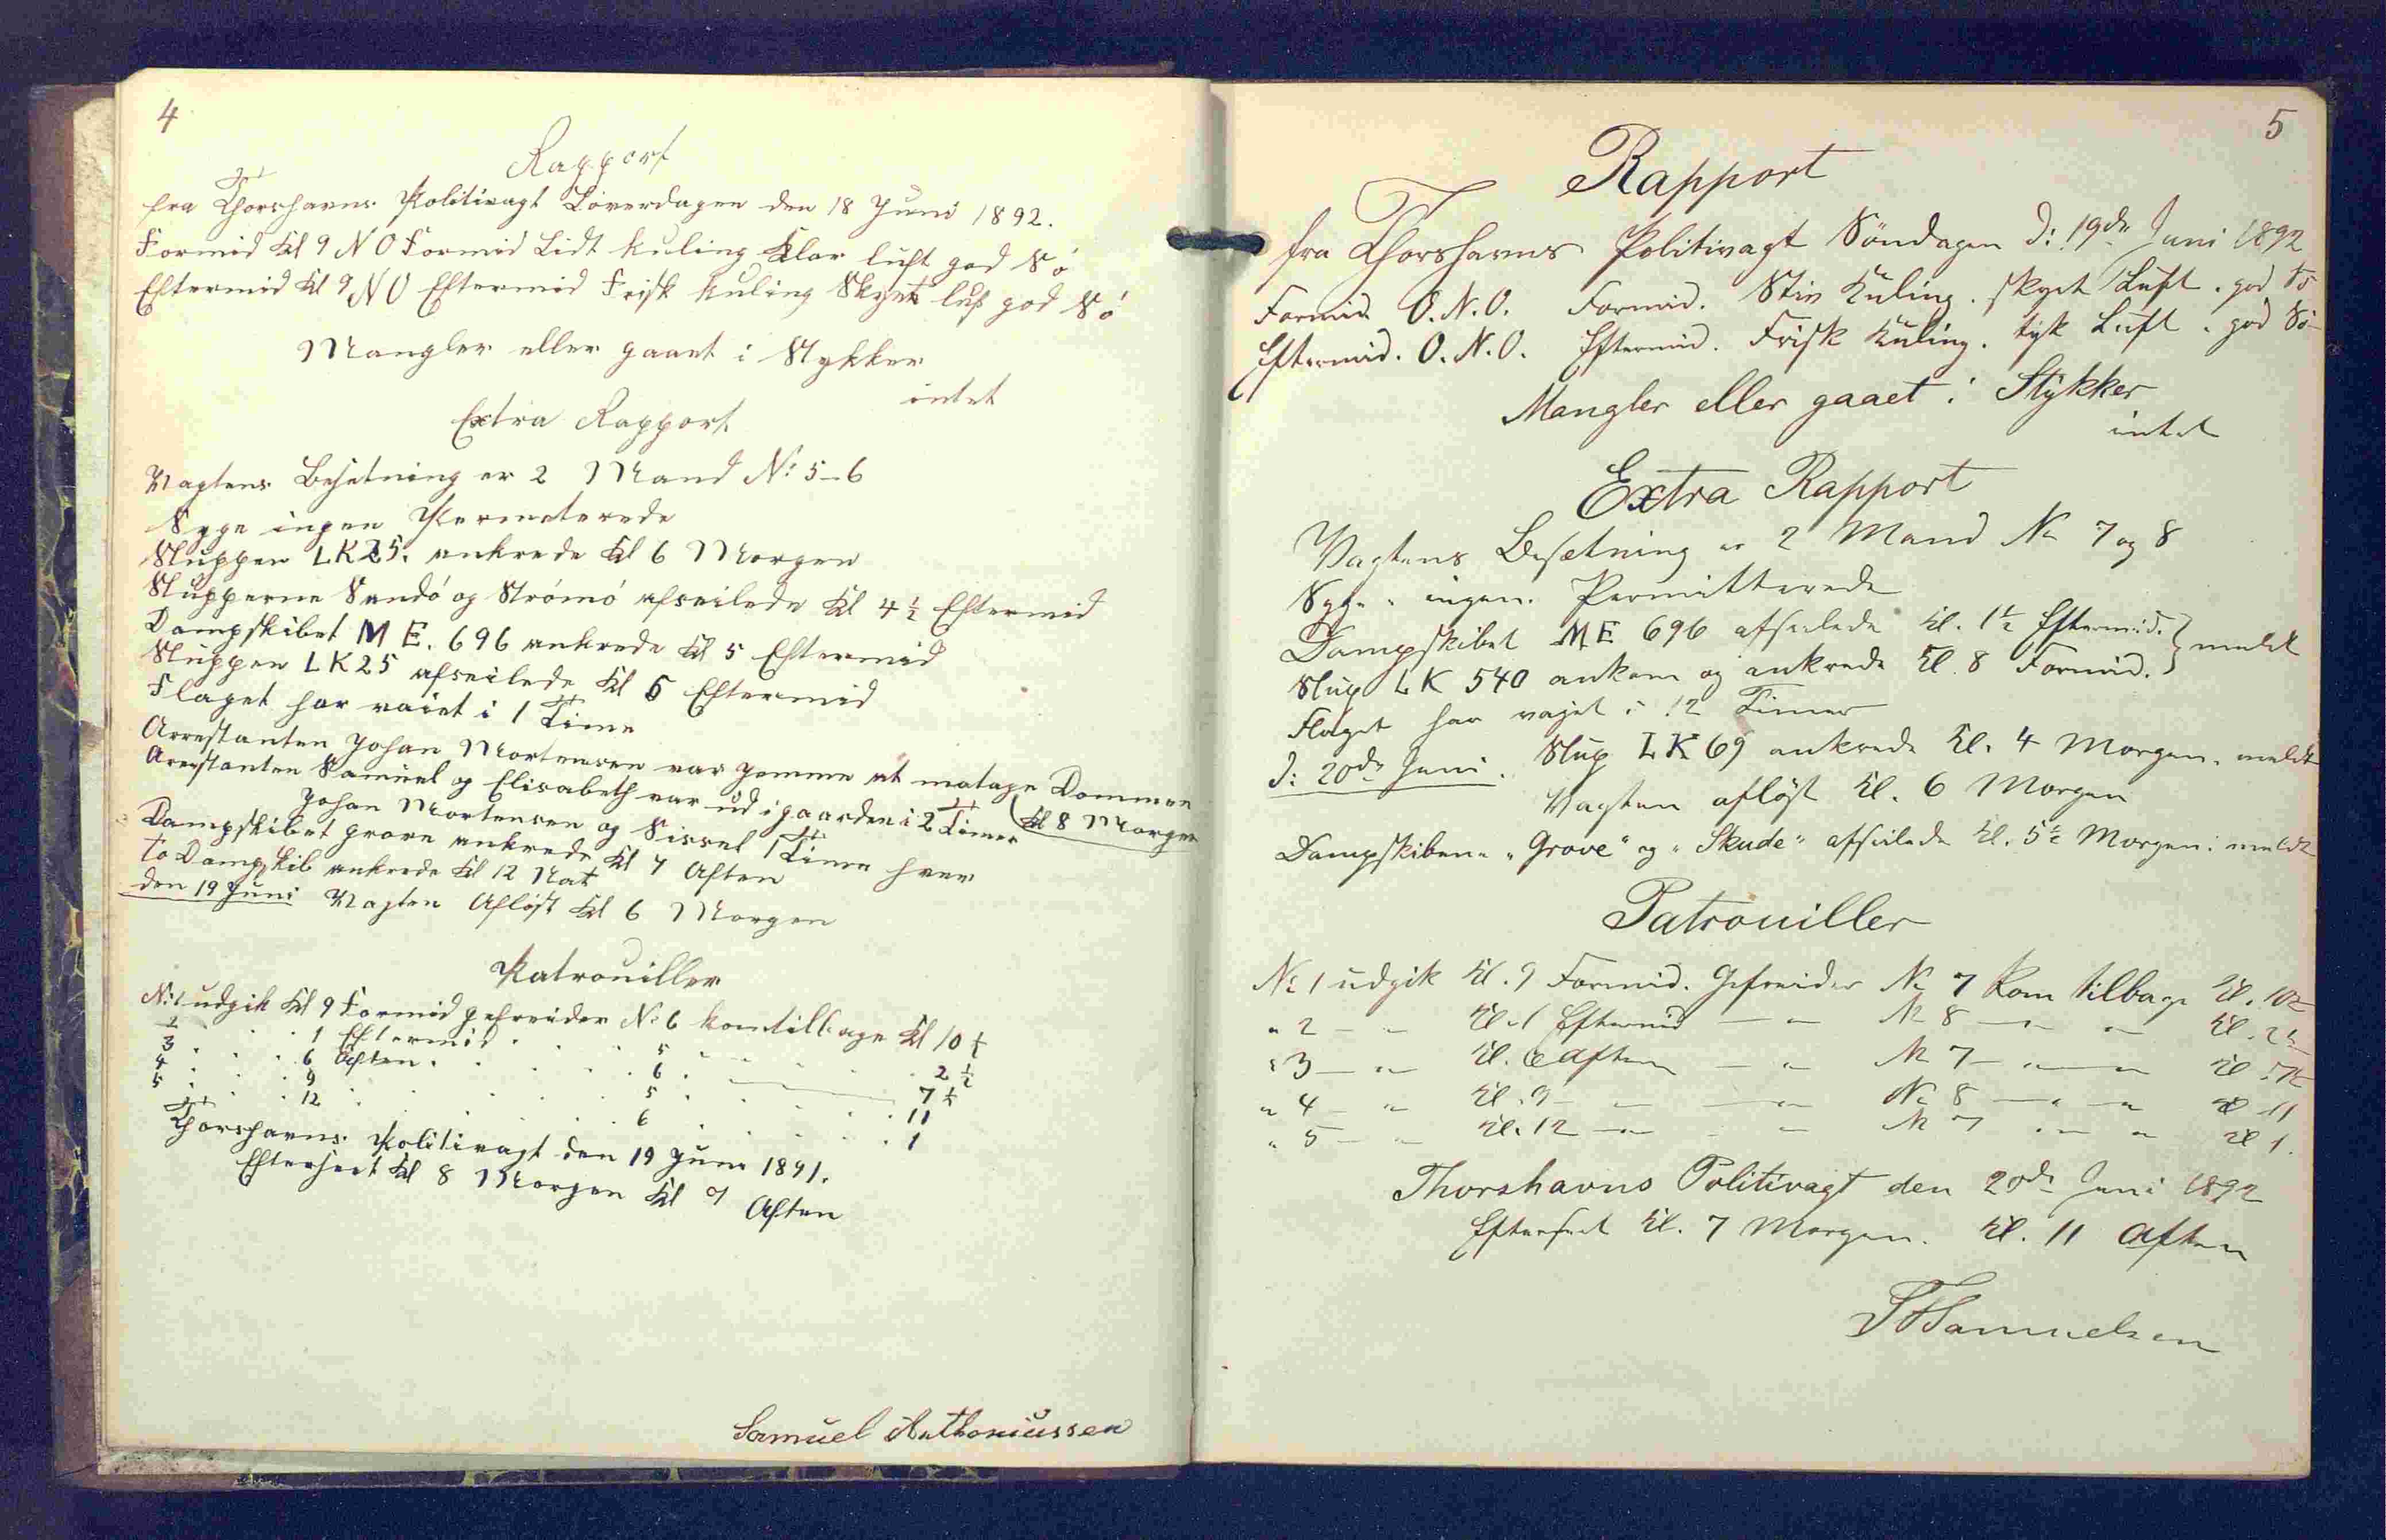 4
Rapport
fra Thorshavns Politivagt Löverdagen den 18 Juni 1892.
Formid Kl 9 N O Formid Lidt kuling Klar luft god Sö
Eftermid Kl 9 N O Eftermid Frisk kuling Skyet luft god Sö
Mangler eller gaaet i Stykker
intet
Extra Rapport
Vagtens Besetning er 2 Mand No 5-6
Syge ingen Permeterede
Sluppen LK25. ankrede Kl 6 Morgen
Slupperne Sandö og Strömö afseilede Kl 4 1/2 Eftermid
Dampskibet M E. 696 ankrede Kl 5 Eftermid
Sluppen LK25 afseilede Kl 6 Eftermid
Flaget har vaiet i 1 Time
Arrestanten Johan Mortensen var hemme at motage Dommen
Kl 8 Morgen
Arrestanten Samuel og Elisabeth var ud i gaarden i 2 Timer
Johan Mortensen og Sissel 1 Time hver
Dampskibet grove ankrede Kl 7 Aften
to Dampskib ankrede Kl 12 Nat
den 19 Juni Vagten Aflöst Kl 6 Morgen
Patrouiller
No 1 udgik Kl 9 Formid gefreider No 6 kom tilbage Kl 10 1/2
2 . . . 1 Eftermid . . . 5 . . . 2 1/2
3 . . . 6 Aften . . . 6 . . . 7 1/2
4 . . . 9 . . . 5 . . . 11
5 . . . 12 . . . 6 . . . 1
Thorshavns Politivagt den 19 Juni 1891.
Efterseet Kl 8 Morgen Kl 9 Aften
Samuel Anthoniussen
5
Rapport
fra Thorshavns Politivagt Söndagen D: 19de Juni 1892
Formid. O.N.O. Formid. Stiv Kuling. skyet Luft. god Sö
Eftermid. O.N.O. Eftermid. Frisk Kuling. tyk Luft. god Sö
Mangler eller gaaet i Stykker
intet
Extra Rapport
Vagtens Besætning er 2 Mand No 7 og 8
Syge " ingen. Permitterede
Dampskibet M.E 696 afseilede Kl. 1 1/2 Eftermid. } meldt
Slup LK 540 ankom og ankrede Kl. 8 Formid.
Flaget har vajet i 12 Timer
D: 20de Juni. Slup LK 69 ankrede Kl. 4 Morgen. meldt
Vagten aflöst Kl. 6 Morgen
Dampskibene "Grove" og "Skude" afseilede Kl. 5 1/2 Morgen: meldt
Patrouiller
No 1 udgik Kl. 9 Formid. Gefreider No 7 Kom tilbage Kl. 10 1/2
" 2 — " Kl. 1 Eftermid — " No 8 — " — " Kl. 2 1/2
" 3 — " Kl. 6 Aften — " No 7 — " — " Kl. 7 1/2
" 4 — " Kl. 9 — " — " No 8 — " — " Kl 11
" 5 — " Kl. 12 — " — " No 7 — " — " Kl 1.
Thorshavns Politivagt den 20de Juni 1892
Efterseet Kl. 7 Morgen. Kl. 11 Aften
Samuelsen